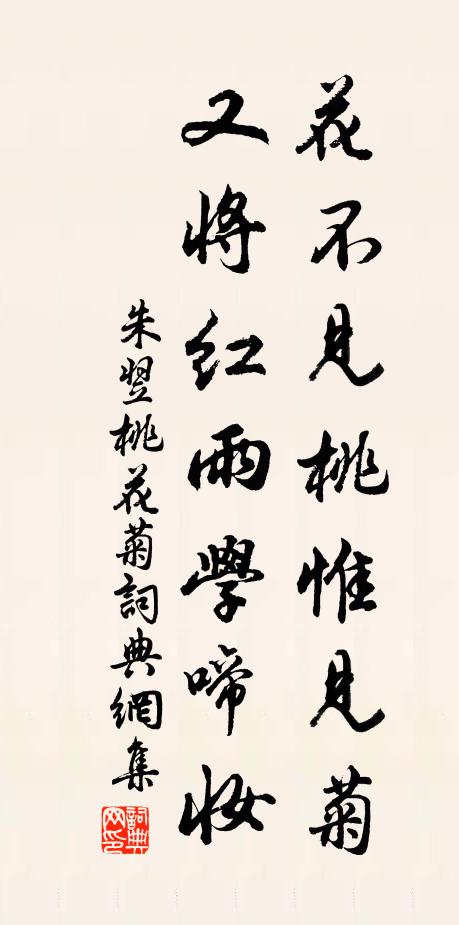 花不見桃惟見菊
又將紅雨學啼妝
朱翌桃花菊詞典網集
詞典網印